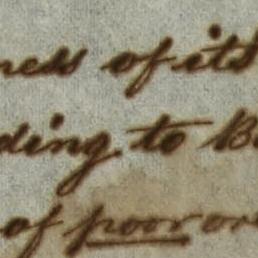 ness of its
ding to B
of poor or